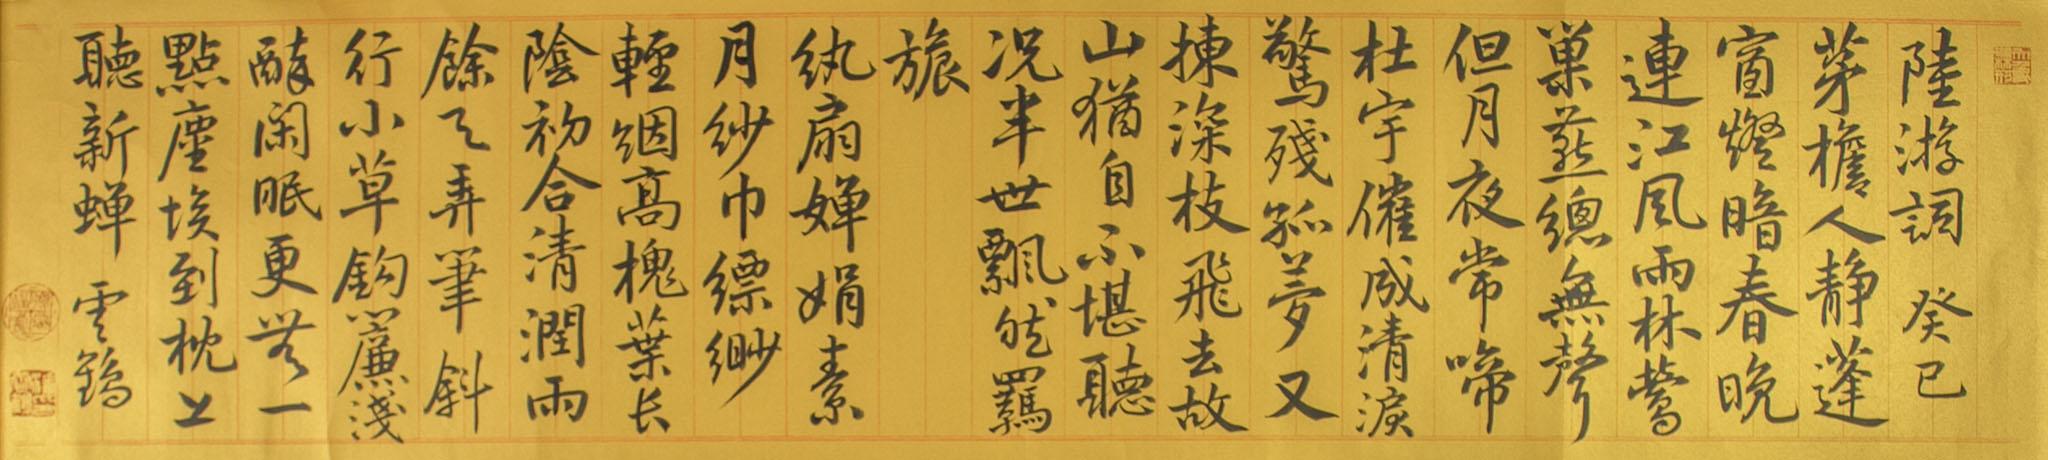 陸游詞 癸巳
茅檐人静蓬
窗燈暗春晚
連江風雨林鶯
巢燕總無聲
但月夜常啼
杜宇催成清淚
驚殘孤夢又
揀深枝飛去故
山猶自不堪聽
况半世飄然羈
旅
紈扇嬋娟素
月紗巾縹緲
輕烟高槐葉长
陰初合清潤雨
餘天弄筆斜
行小草鈎簾淺
醉閑眠更無一
點塵埃到枕上
聽新蝉 雲鶴